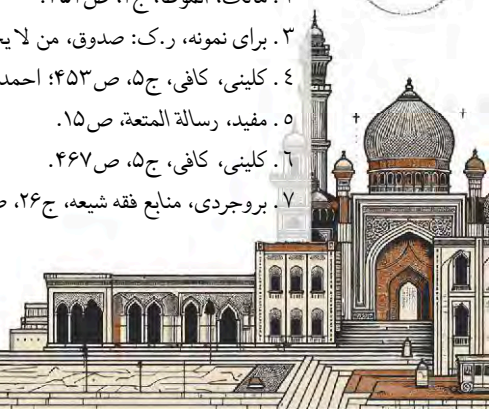 ۳. برای نمونه، ر.ک: صدوق، من لا
۴. کلینی، کافی، ج۵، ص۴۵۳؛ احمد
۵. مفید، رسالة المتعة، ص۱۵.
۶. کلینی، کافی، ج۵، ص۴۶۷.
۷. بروجردی، منابع فقه شیعه، ج۲۶،